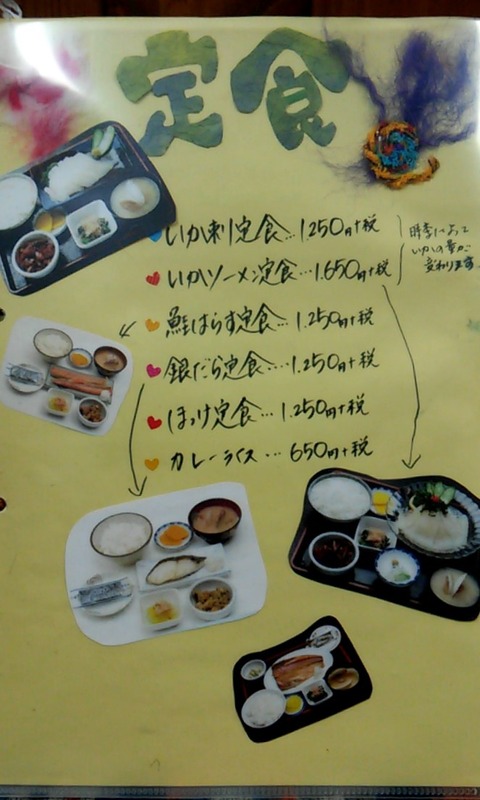 定食
いか刺定食…1.250円+税
いかソーメン定食…1.650円+税
時季によって
いかの量が
変わります
鮭はらす定食…1.250円+税
銀だら定食…1.250円+税
ほっけ定食…1.250円+税
カレーライス…650円+税